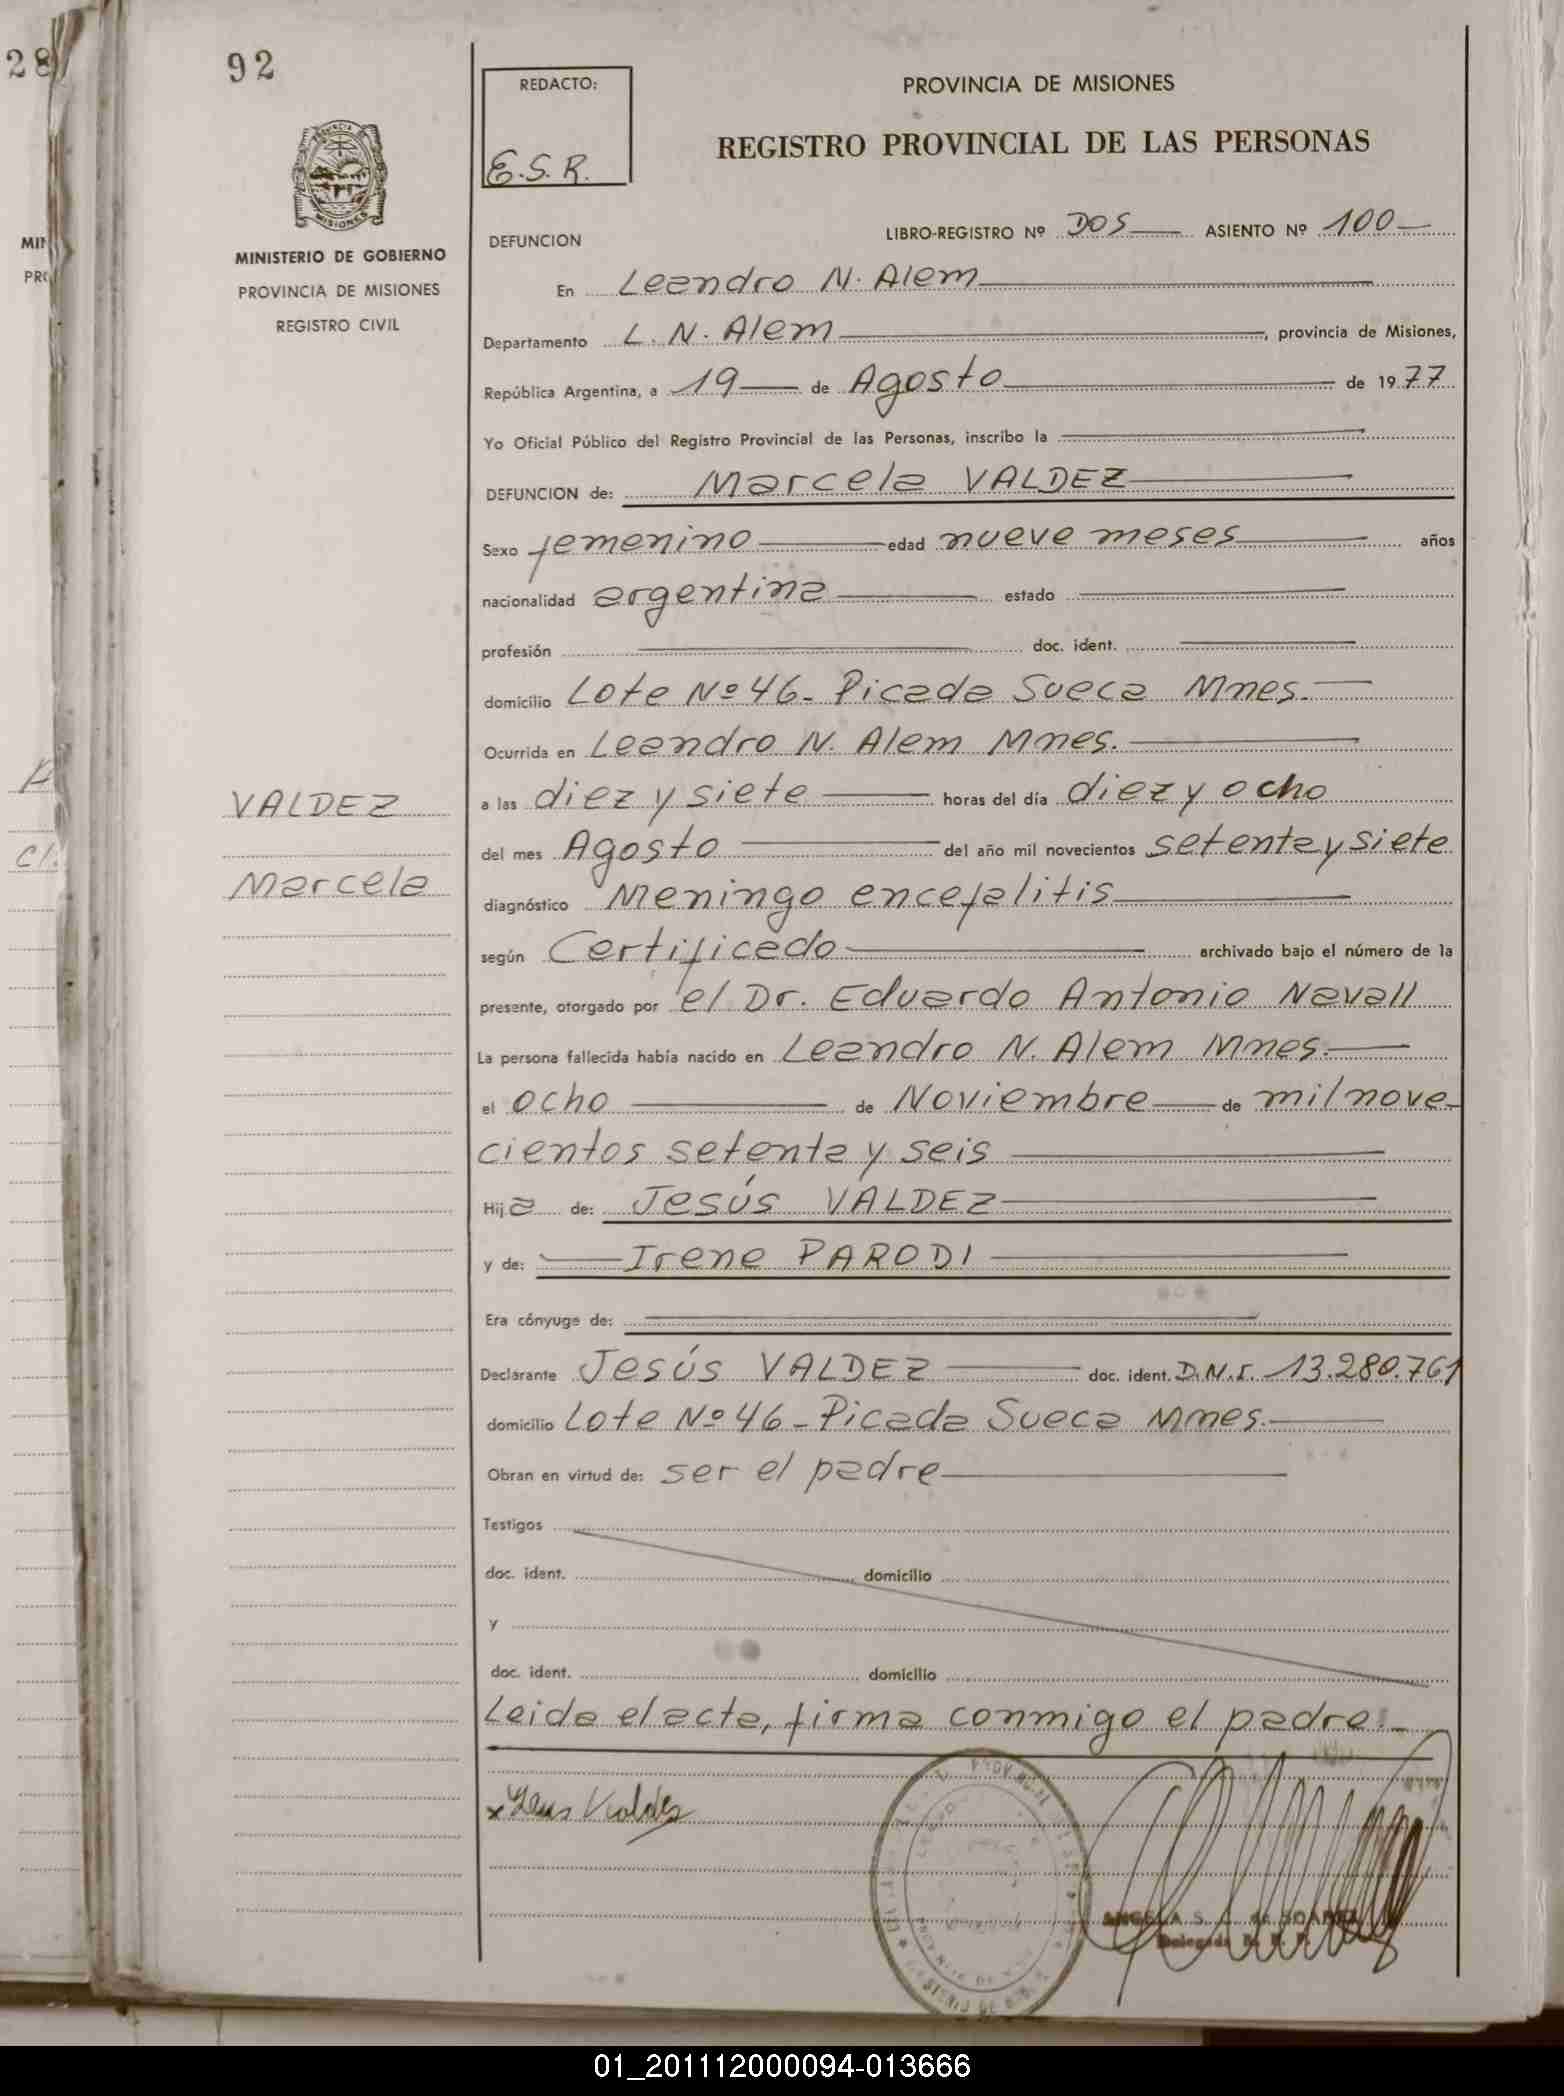 28
92
REDACTO:
E.S.R.
PROVINCIA DE MISIONES
REGISTRO PROVINCIAL DE LAS PERSONAS
MINISTERIO DE GOBIERNO
PROVINCIA DE MISIONES
REGISTRO CIVIL
DEFUNCION
LIBRO-REGISTRO Nº DOS ASIENTO Nº 100
En Leandro N. Alem
Departamento L. N. Alem, provincia de Misiones,
República Argentina, a 19 de Agosto de 1977
Yo Oficial Público del Registro Provincial de las Personas, inscribo la
DEFUNCION de: Marcela VALDEZ
Sexo femenino edad nueve meses años
nacionalidad argentina estado
profesión doc. ident.
domicilio Lote Nº 46- Picada Sueca Mnes.
Ocurrida en Leandro N. Alem Mnes.
a las diez y siete horas del día diez y ocho
del mes Agosto del año mil novecientos setenta y siete
diagnóstico Meningo encefalitis
según Certificado archivado bajo el número de la
presente, otorgado por el Dr. Eduardo Antonio Navall
La persona fallecida había nacido en Leandro N. Alem Mnes.
el ocho de Noviembre de mil nove-
cientos setenta y seis
Hija de: Jesús VALDEZ
y de: Irene PARODI
Era cónyuge de:
Declarante Jesús VALDEZ doc. ident. D.N.I. 13.280.761
domicilio Lote Nº 46- Picada Sueca Mnes.
Obran en virtud de: ser el padre
Testigos
doc. ident. domicilio
y
doc. ident. domicilio
Leida el acta, firma conmigo el padre.-
VALDEZ
Marcela
x Jesus Valdez
ANGELA S. de SOAREZ
Delegada
01_201112000094-013666